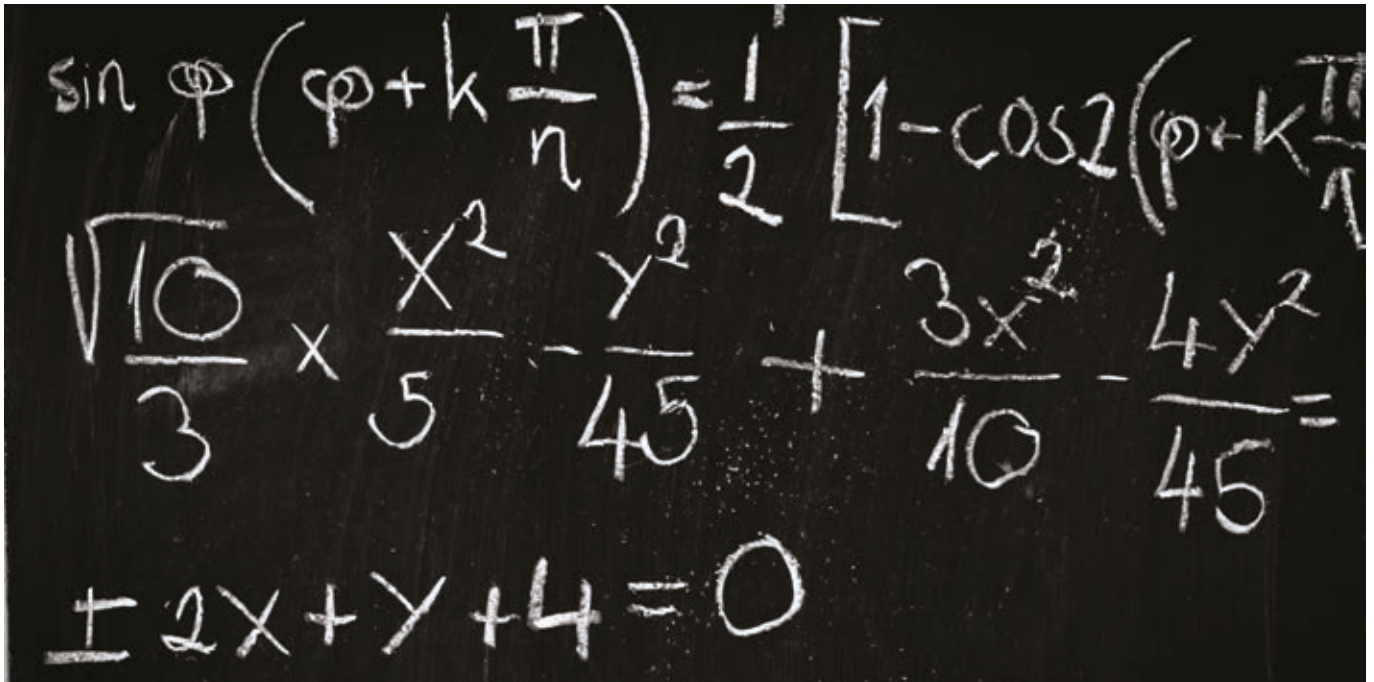 sin φ (φ + k π/n) = 1/2 [1 - cos2 (φ + k π/n
√10/3 x x²/5 - y²/45 + 3x²/10 - 4y²/45 =
± 2x + y + 4 = 0